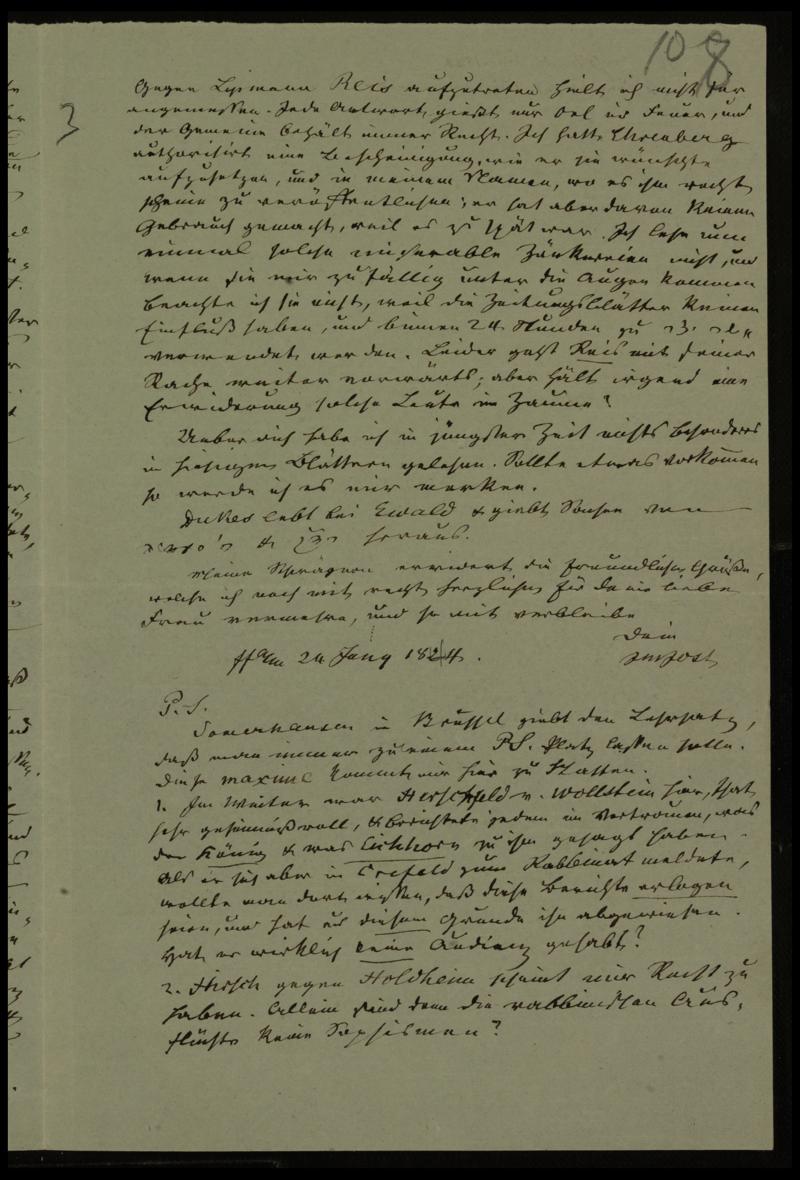 108
3
Gegen Lipmann Reis aufzutreten hielt ich nicht für
angemessen. Jede Antwort gießt nur Oel ins Feuer, und
der Gemeine behält immer Recht. Ich hatte Ehrenberg
authorisirt eine Bescheinigung, wie er sie wünschte
aufzusetzen, und in meinem Namen, wo es ihm recht
scheine zu veröffentlichen; er hat aber davon keinen
Gebrauch gemacht, weil es zu spät war. Ich lese nun
einmal solche miserable Zänkereien nicht, und
wenn sie mir zufällig unter die Augen kommen
beachte ich sie nicht, weil die Zeitungsblätter keinen
Einfluß haben, und binnen 24 Stunden zu
verwendet werden. Leider geht Reis mit seiner
Rache weiter vorwärts; aber hält irgend eine
Erwiderung solche Leute im Zaume?
Ueber dich habe ich in jüngster Zeit nichts besonderes
in hiesigen Blättern gelesen. Sollte etwas vorkommen
so werde ich es mir merken.
Dukes lebt bei Ewald & giebt Sachen von
& heraus.
Meine erwidert die freundlichen Grüße,
welche ich noch mit recht herzlichen für deine liebe
Frau vermehre, und somit verbleibe
Dein
JMJost
ffam 24 Jany 1844.
P.S.
in Brüssel giebt den Lehrsatz,
daß man immer zu einem P.S. Platz lassen solle.
Diese maxime kommt mir hier zu Statten.
1. Im Winter war Hirschfeld v. Wollstein hier, that
sehr geheimnißvoll, & berichtete jedem im Vertrauen, was
der König & was Eichhorn zu ihm gesagt haben.
Als er sich aber in Crefeld zum Rabbinat meldete,
wollte man dort wissen, daß diese Berichte erlogen
seien, und hat aus diesem Grunde ihn abgewiesen.
Hat er wirklich keine Audienz gehabt?
2. Hirsch gegen Holdheim scheint mir Recht zu
haben. Allein sind denn die rabbinischen Aus-
flüchte keine Sophismen?